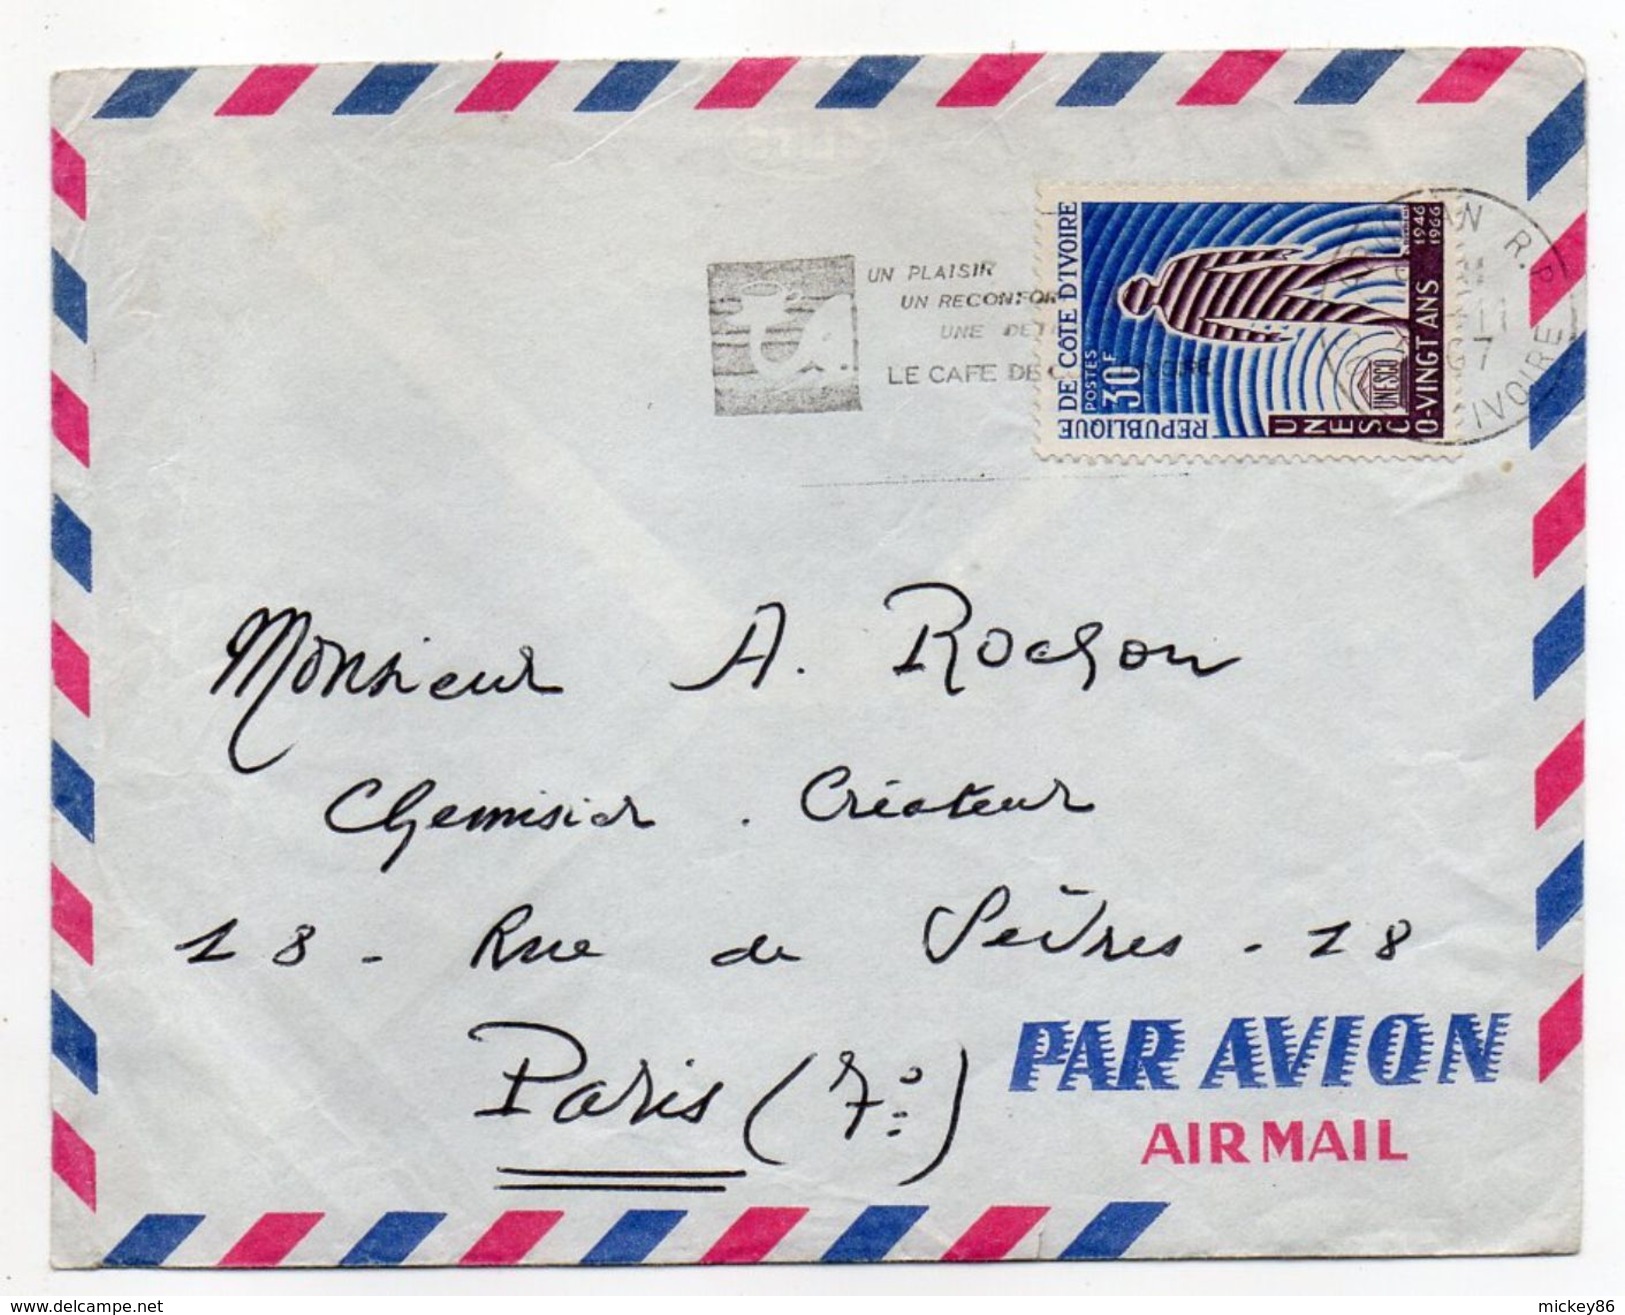 UN PLAISIR
UN RECONFOR
UNE DET
LE CAFE DE
REPUBLIQUE DE CÔTE D'IVOIRE
POSTES 30F
UNESCO
UNESCO
O-VINGT ANS 1946 1966
R.P
IVOIRE
Monsieur A. Rochon
Chemisier . Créateur
18 - Rue de Sèvres - 18
Paris (7e)
PAR AVION
AIR MAIL
delcampe.net
mickey86